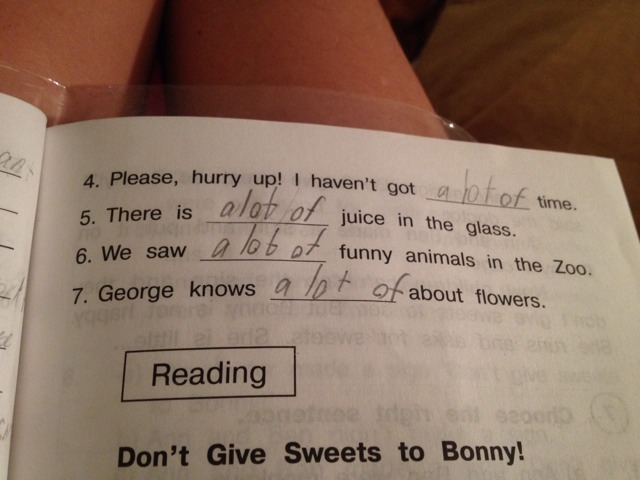 4. Please, hurry up! I haven't got a lot of time.
5. There is a lot of juice in the glass.
6. We saw a lot of funny animals in the Zoo.
7. George knows a lot of about flowers.
Reading
Don't Give Sweets to Bonny!